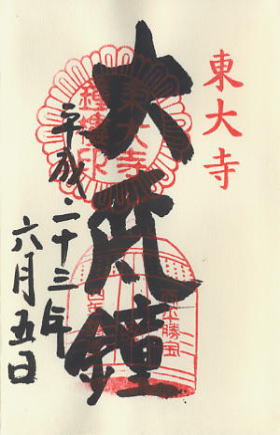 東大寺
大梵鐘
平成二十三年
六月五日